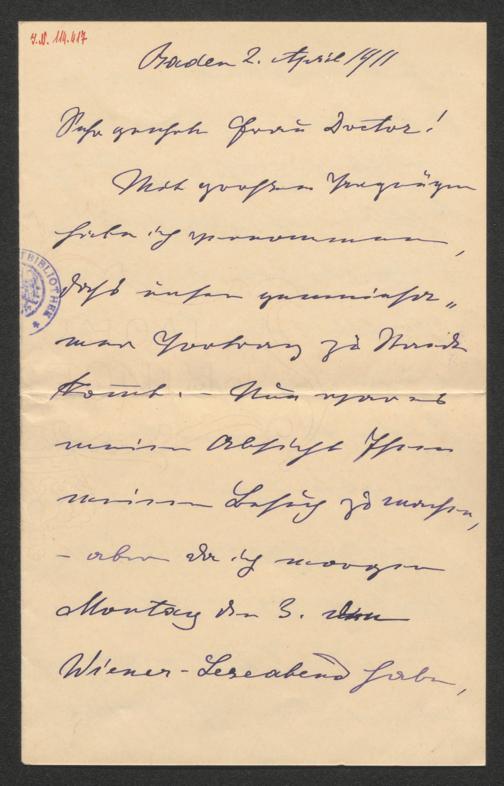 I.N. 114.617
Baden 2. April 1911
Sehr geehrte Frau Doctor!
Mit großem Vergnügen
habe ich vernommen,
daß unser gemeinsa-
mer Vortrag zu Stande
kom̅t. – Nun war es
meine Absicht Ihnen
meinen Besuch zu machen,
– aber da ich morgen
Montag den 3.
Wiener-Leseabend habe,
BIBLIOTHEK